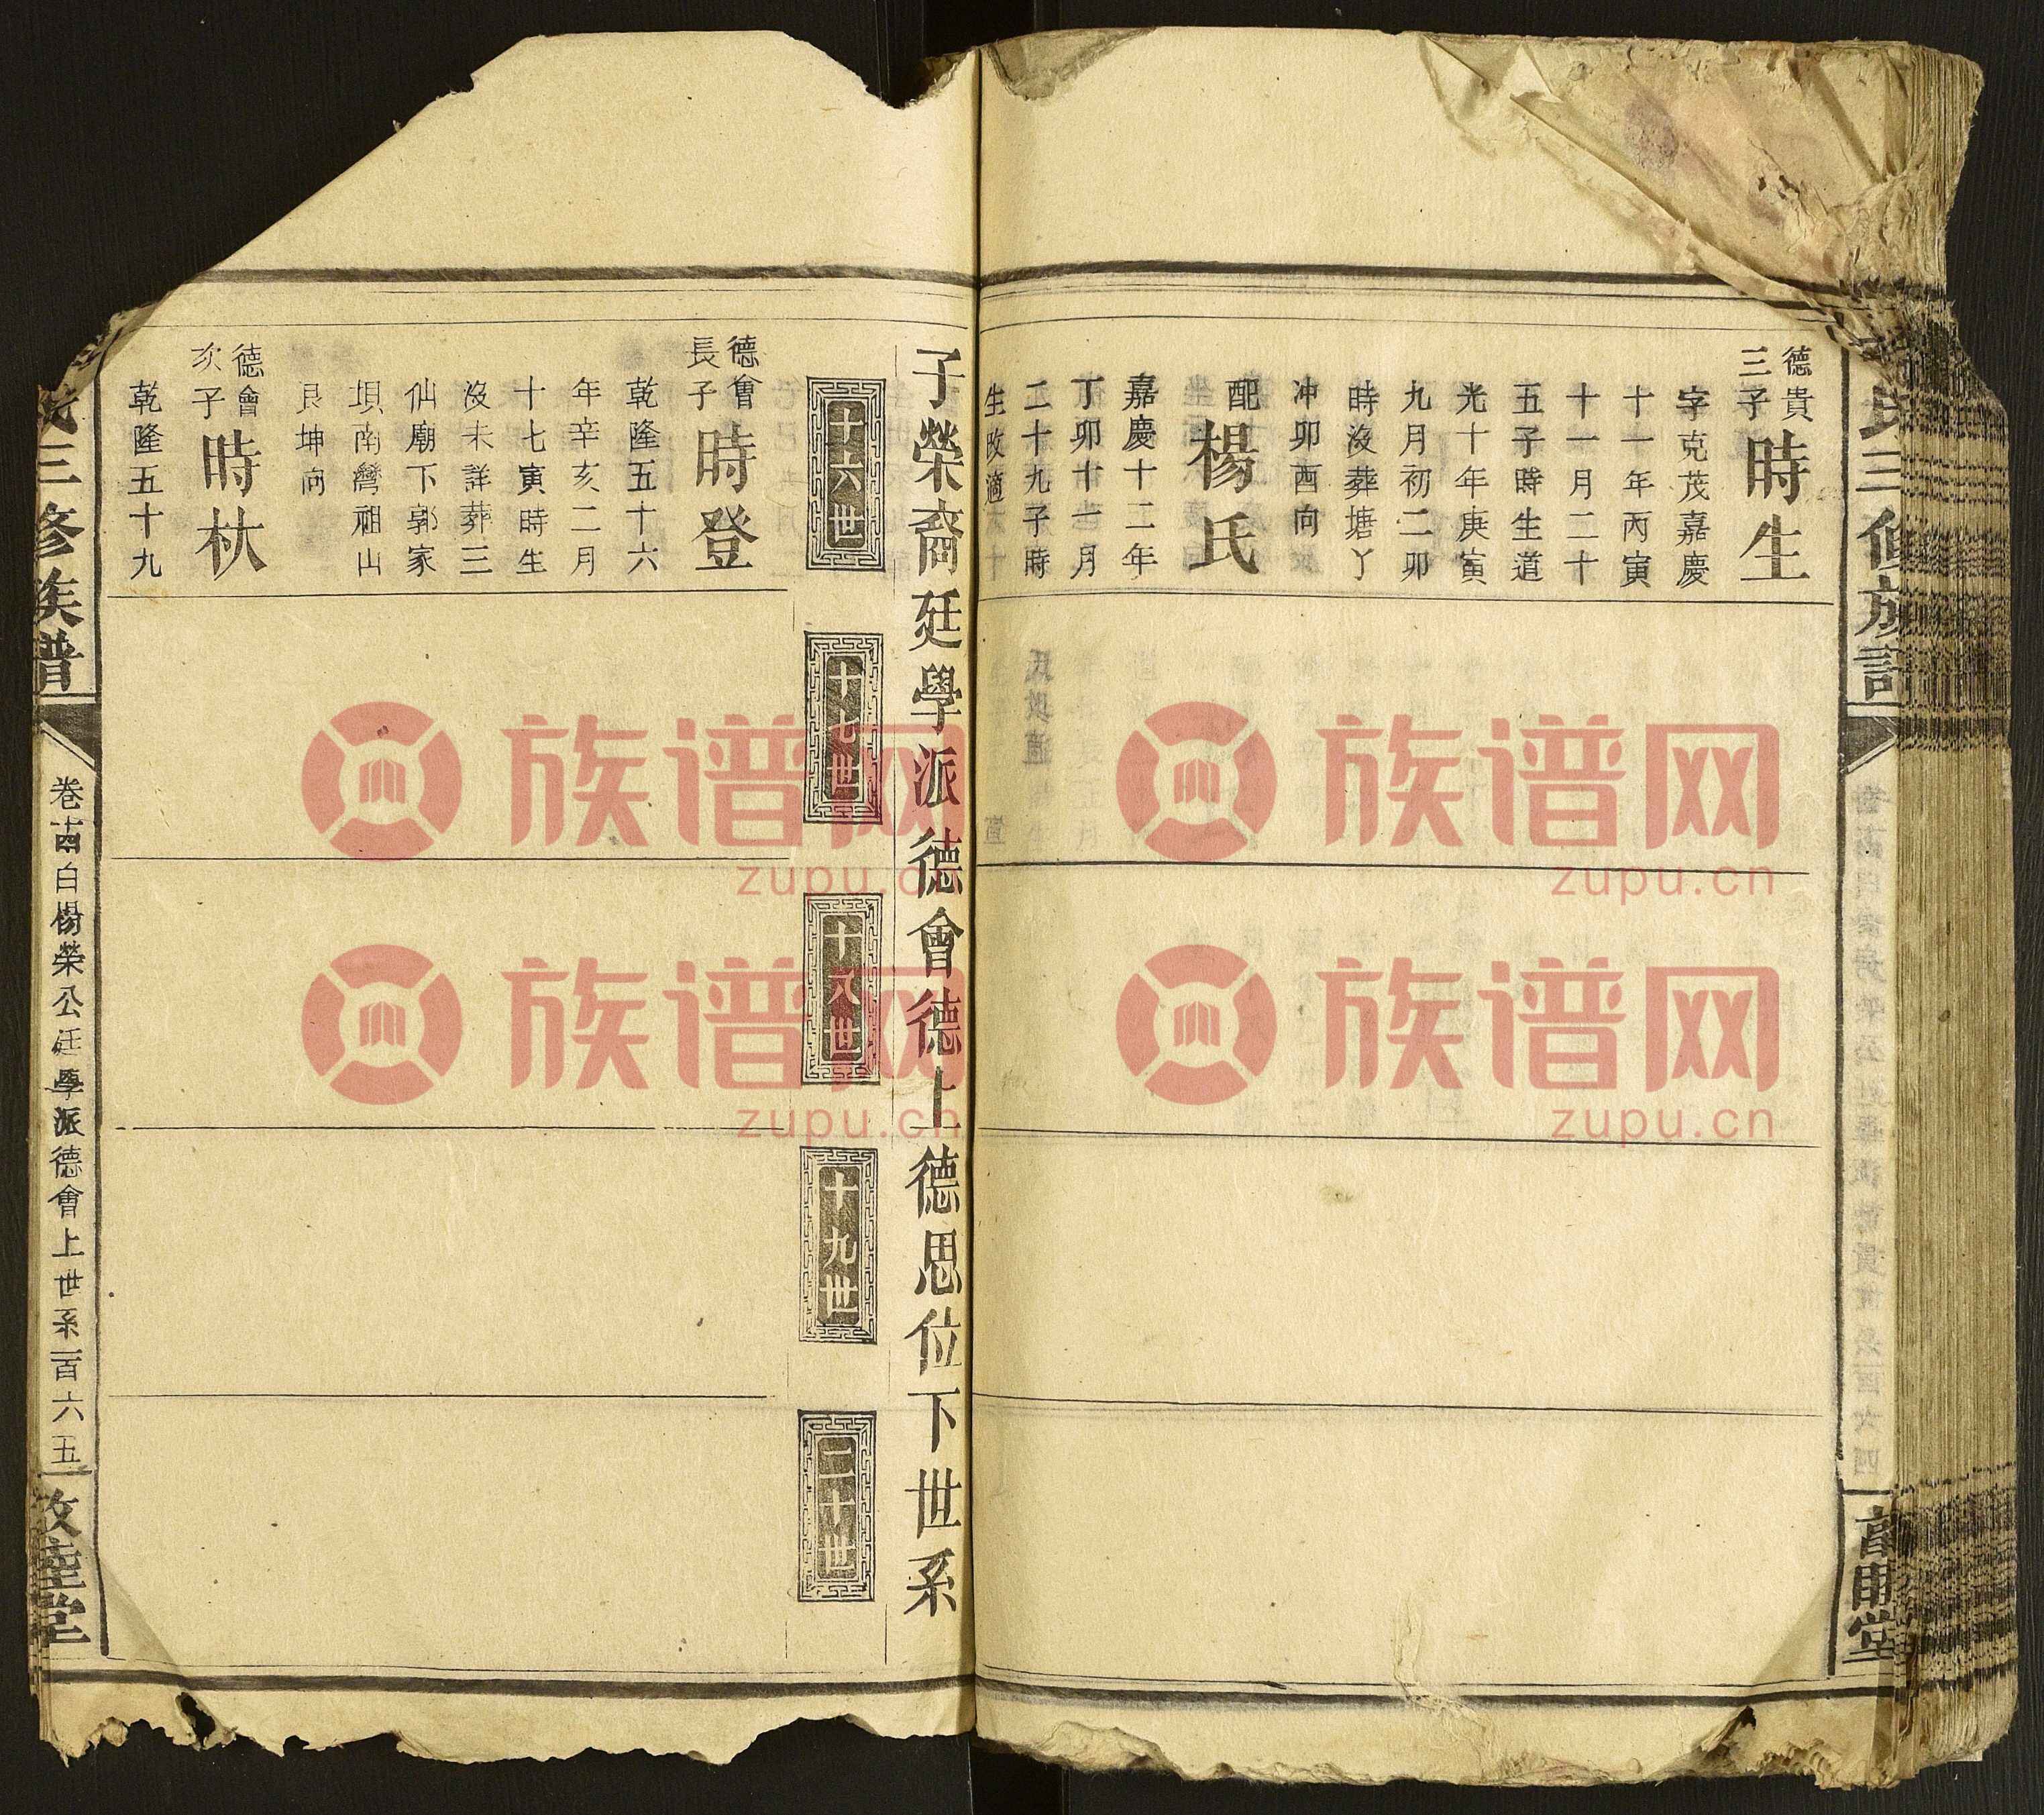 德貴
三子
時生
字克茂嘉慶
十一年丙寅
十一月二十
五子時生道
光十年庚寅
九月初二卯
時沒葬塘丫
冲卯酉向
配
楊氏
嘉慶十二年
丁卯十一月
二十九子時
生改適
子榮裔廷學派德會德上德思位下世系
十六世
十七世
十八世
十九世
二十世
德會
長子
時登
乾隆五十六
年辛亥二月
十七寅時生
沒未詳葬三
仙廟下郭家
垻南灣祖山
艮坤向
德會
次子
時杕
乾隆五十九
氏三修族譜
卷十四白楊榮公廷學派德會上世系百六五
敦睦堂
族谱网
zupu.cn
族谱网
zupu.cn
族谱网
zupu.cn
族谱网
zupu.cn